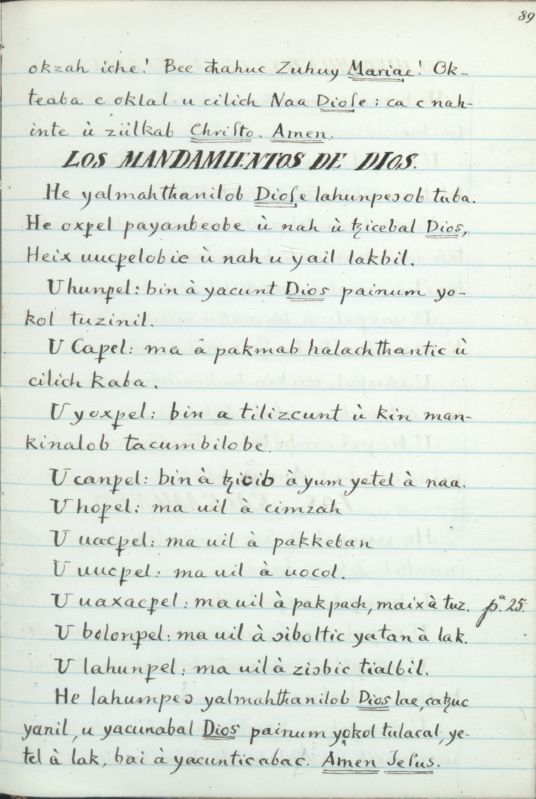 89
okzah iche! Bee ꞇhahuc Zuhuy Mariae! Ok-
teaba c oklal u cilich Naa Dioſe: ca c nah-
inte ù ziilkab Chriſto. Amen.
LOS MANDAMIENTOS DE DIOS.
He yalmahthanilob Dioſe lahunpeɔob tuba.
He oxpel payanbeobe ù nah ù ꜩicebal Dios,
Heix uucpelobie ù nah u yail lakbil.
U hunpel: bin à yacunt Dios painum yo-
kol tuzinil.
U Capel: ma à pakmab halachthantic ù
cilich kaba.
U yoxpel: bin a tilizcunt ù kin man-
kinalob tacumbilobe.
U canpel: bin à ꜩicib à yum yetel à naa.
U hopel: ma uil à cimzah
U uacpel: ma uil à pakkeban
U uucpel: ma uil à uocol.
U uaxacpel: ma uil à pakpach, maix à tuz. pª 25.
U bolonpel: ma uil à ɔiboltic yatan à lak.
U lahunpel: ma uil à ziɔbic tialbil.
He lahumpeɔ yalmahthanilob Dios lae, caꜩuc
yanil, u yacunabal Dios painum yokol tulacal, ye-
tel à lak, bai à yacunticabac. Amen Jeſus.